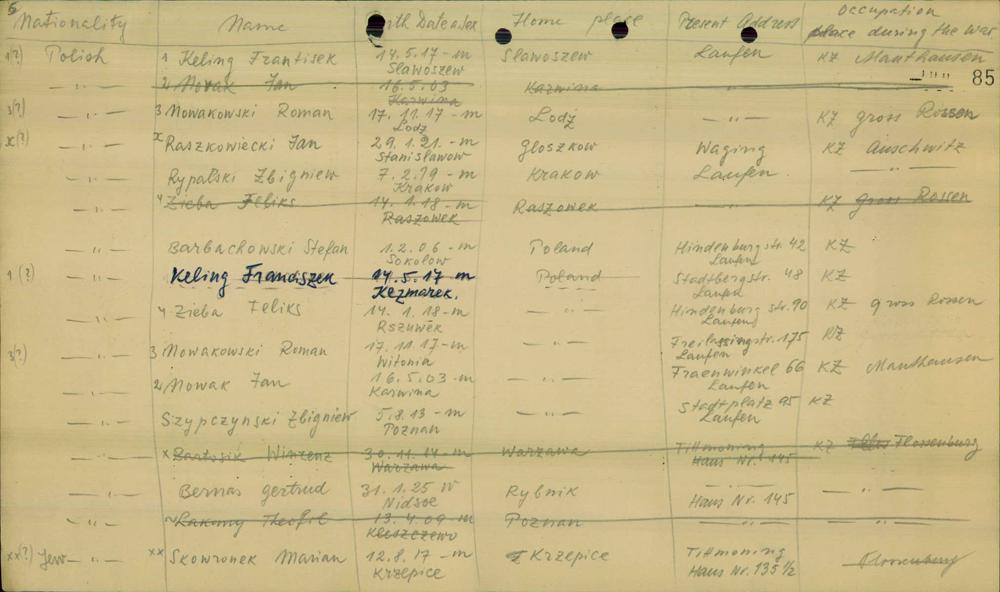 6
Nationality Name Birth Date a Sex Home place Present Address Occupation
place during the War
1?) Polish 1 Keling Frantisek 14.5.17 - m Slawoszew Laufen KZ Mauthausen
Slawoszew
85
— " — 2 Nowak Jan 16.5.03 Karwina
Karwina
3(?) — " — 3 Nowakowski Roman 17.11.17 - m Lodz — " — KZ gross Rossen
Lodz
x(?) — " — x Raszkowiecki Jan 29.1.21. - m Gloszkow Waging KZ Auschwitz
Stanislawow
— " — Rypalski Zbigniew 7.2.19 - m Krakow Laufen — " —
Krakow
— " — 4 Zieba Feliks 14.1.18 - m Raszowek — " — KZ gross Rossen
Raszowek
— " — Barbachowski Stefan 1.2.06 - m Poland Hindenburgstr. 42 KZ
Sokolow Laufen
1 (?) — " — Keling Franciszek 14.5.17 - m Poland Stadtbergstr. 48 KZ
Kezmarek. Laufen
— " — 4 Zieba Feliks 14.1.18 - m — " — Hindenburg str. 90 KZ gross Rossen
Rszuwek Laufen
3(?) — " — 3 Nowakowski Roman 17.11.17 - m — " — Freilassingstr. 175 KZ
Witonia Laufen
— " — 2 Nowak Jan 16.5.03 - m — " — Fraenwinkel 66 KZ Mauthausen
Karwina Laufen
— " — Szypczynski Zbigniew 5.8.13 - m — " — Stadtplatz 95 KZ
Poznan Laufen
— " — x Bartosik Winzenz 30.11.14 - m Warzawa Tittmoning KZ Flossenburg
Warzawa Haus Nr. 145
— " — Bernas gertrud 31.1.25 W Rybnik — " — — " —
Haus Nr. 145
— " — Teofil 13.4.09 - m Poznan — " — — " —
Kleszczewo
xx(?) Jew — " — xx Skowronek Marian 12.8.17 - m Krzepice Tittmoning Flossenburg
Krzepice Haus Nr. 135 1/2